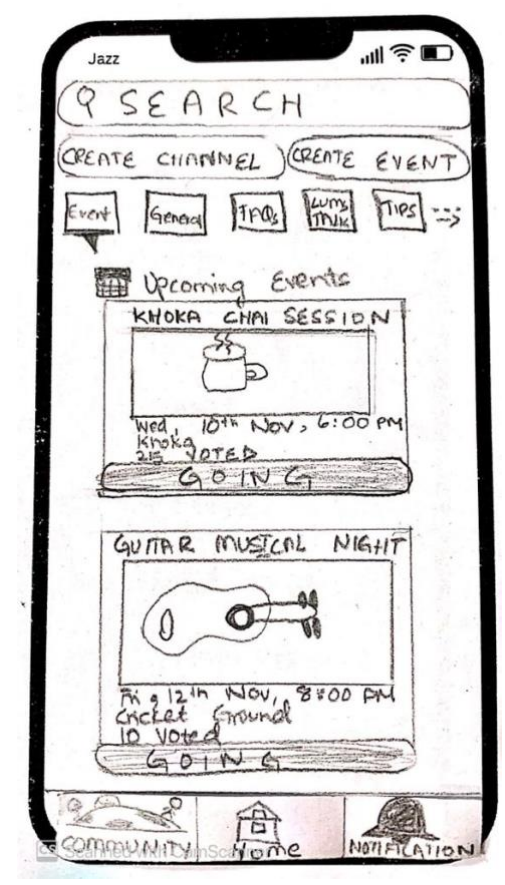 Jazz
SEARCH
CREATE CHANNEL CREATE EVENT
Event General FAQs LUMS TALK TIPS
Upcoming Events
KHOKA CHAI SESSION
Wed, 10th Nov, 6:00 PM
Khoka
215 VOTED
GOING
GUITAR MUSICAL NIGHT
Fri, 12th Nov, 8:00 PM
Cricket Ground
10 Voted
GOING
COMMUNITY Home NOTIFICATION
CS Scanned with CamScanner